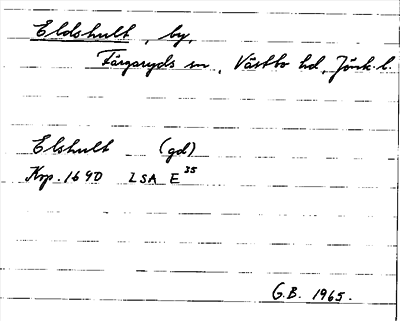 Eldshult, by,
Färgaryds sn, Västbo hd, Jönk. l.
Elshult (gd)
Krp. 1690 LSA E 35
G.B. 1965.